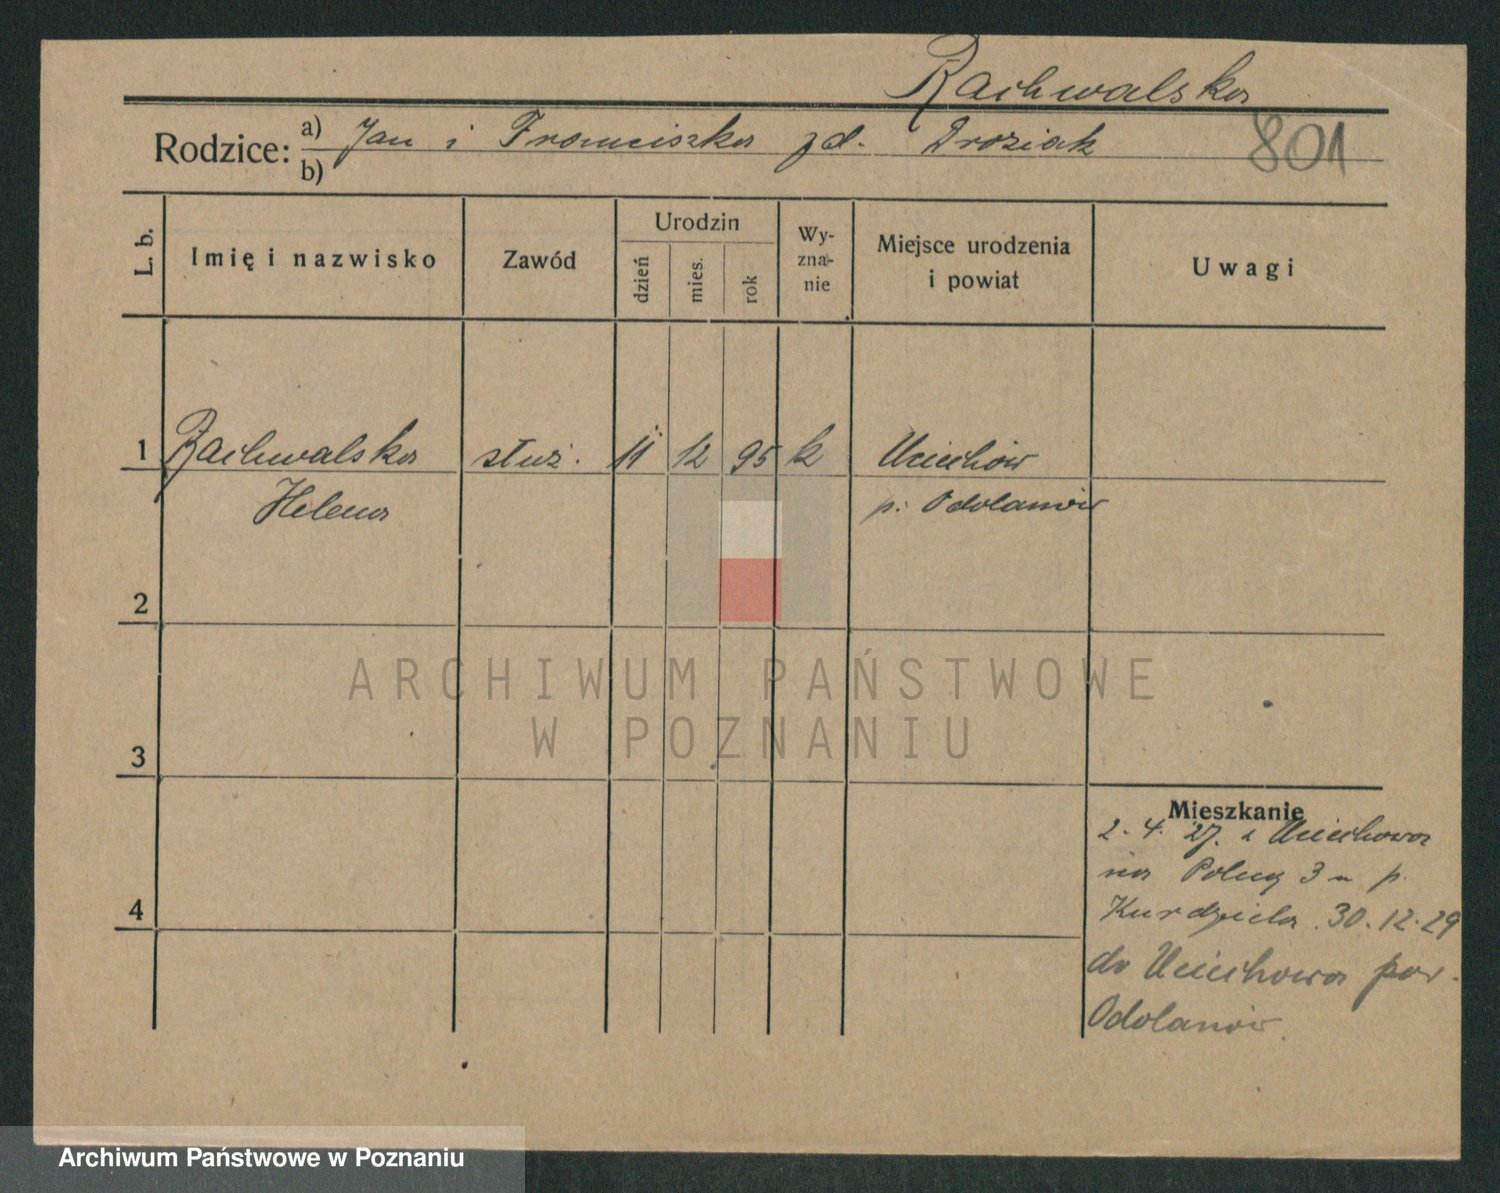 Rachwalska
Rodzice: a) Jan i Franciszka zd. Droziak
801
b)
L. b.
Imię i nazwisko
Zawód
Urodzin
dzień
mies.
rok
Wy-
zna-
nie
Miejsce urodzenia
i powiat
Uwagi
1 Rachwalska służ. 11 12 95 k Uciechów
Helena p. Odolanów
2
3
4
Mieszkanie
2. 4. 27. z Uciechowa
na Polną 3 p.
Kurdziela 30.12.29
do Uciechowa pow.
Odolanów
ARCHIWUM PAŃSTWOWE
W POZNANIU
Archiwum Państwowe w Poznaniu